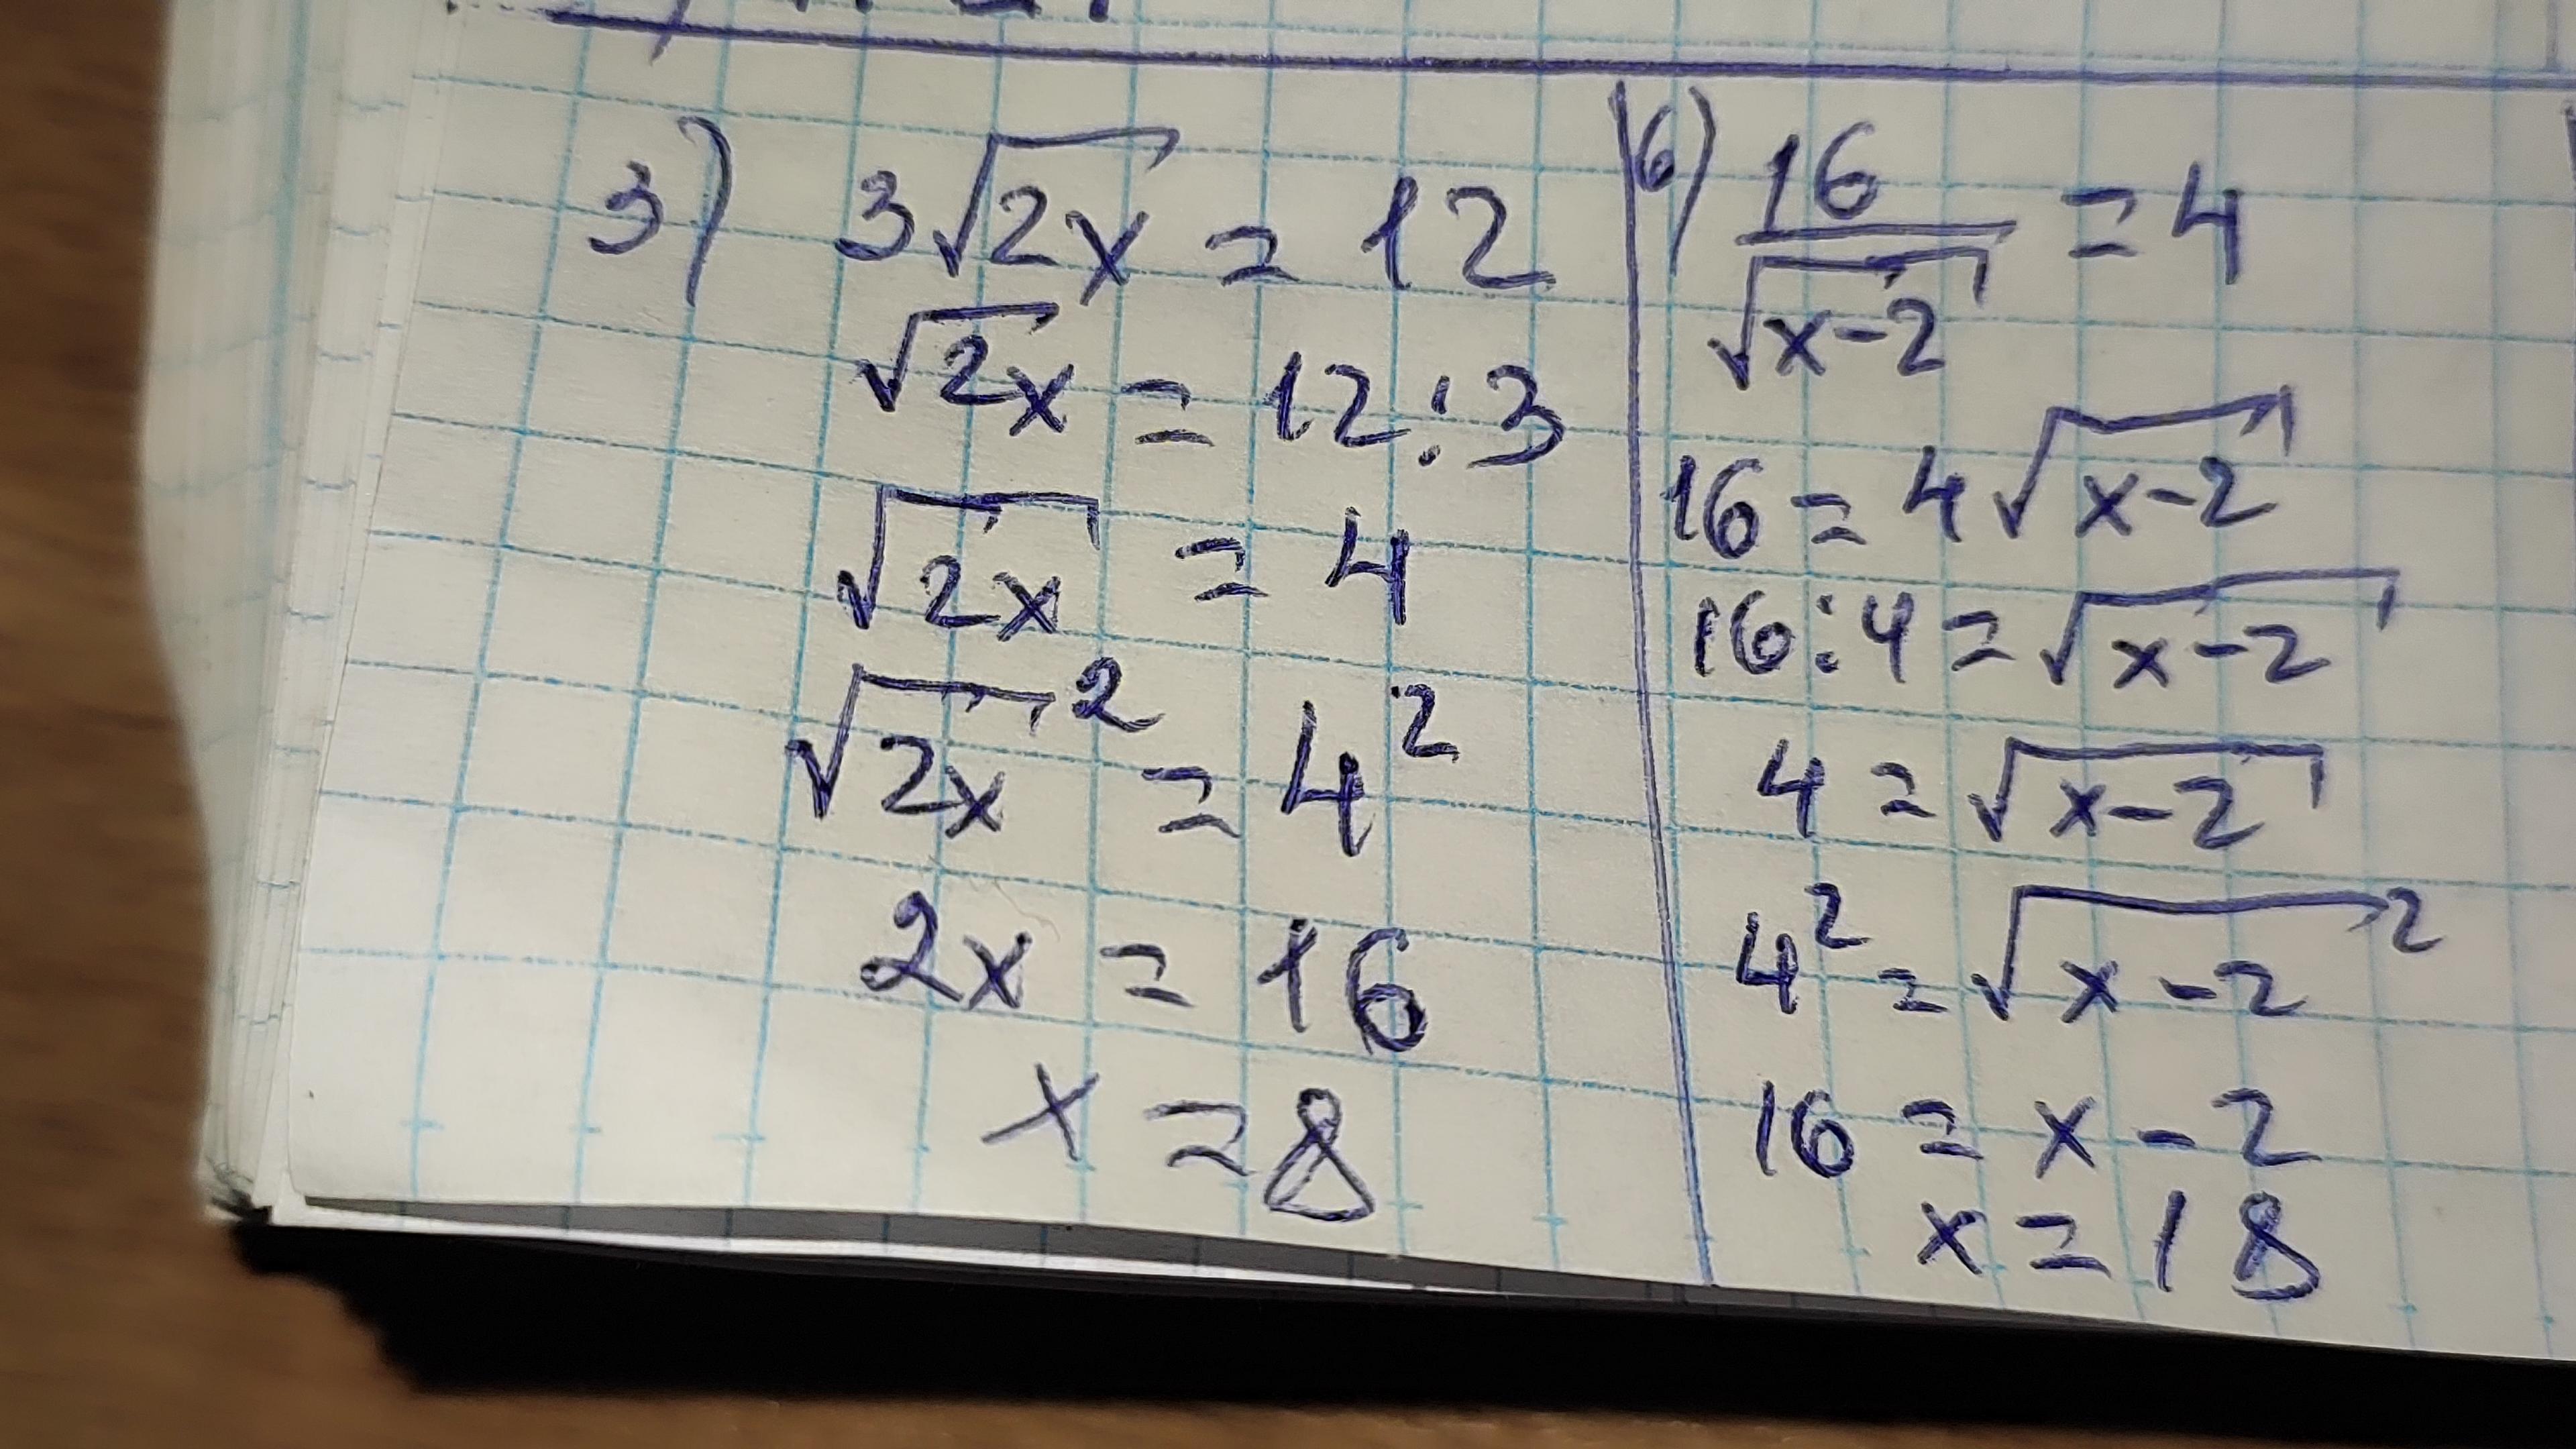 3) 3√2x = 12
√2x = 12:3
√2x = 4
√2x² = 4²
2x = 16
x = 8
6) 16/√x-2 = 4
16 = 4√x-2
16:4 = √x-2
4 = √x-2
4² = √x-2²
16 = x-2
x = 18